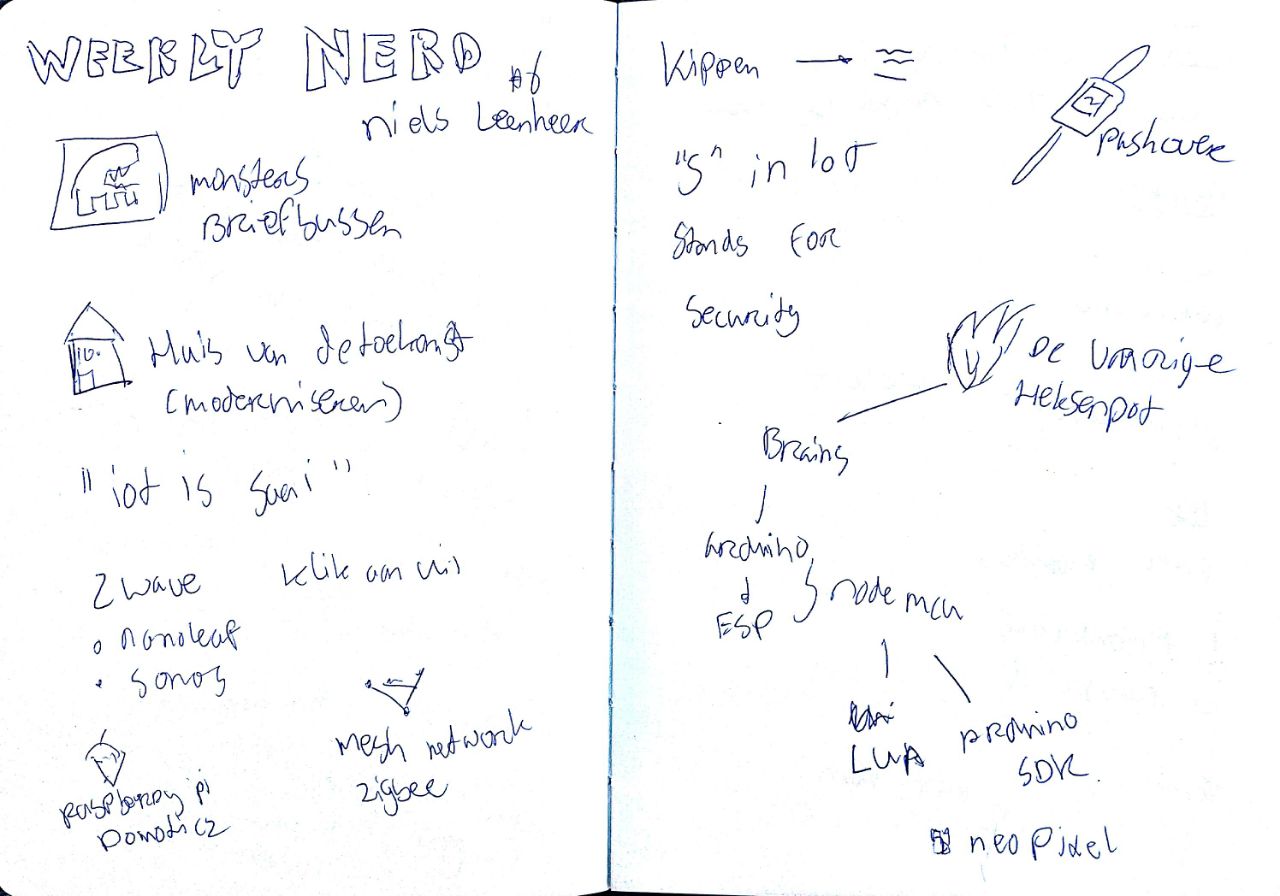 WEEKLY NERD #6
niels Leenheer
monsters
Briefbussen
Huis van de toekomst
(moderniseren)
"iot is saai"
Z wave
klik aan uit
nanoleaf
sonos
mesh network
zigbee
raspberry pi
Domoticz
Kippen
pushover
"S" in IoT
Stands For
Security
De Vurrige
Heksenpot
Brains
Arduino
ESP
node mcu
LUA
Arduino
SDK
neopixel